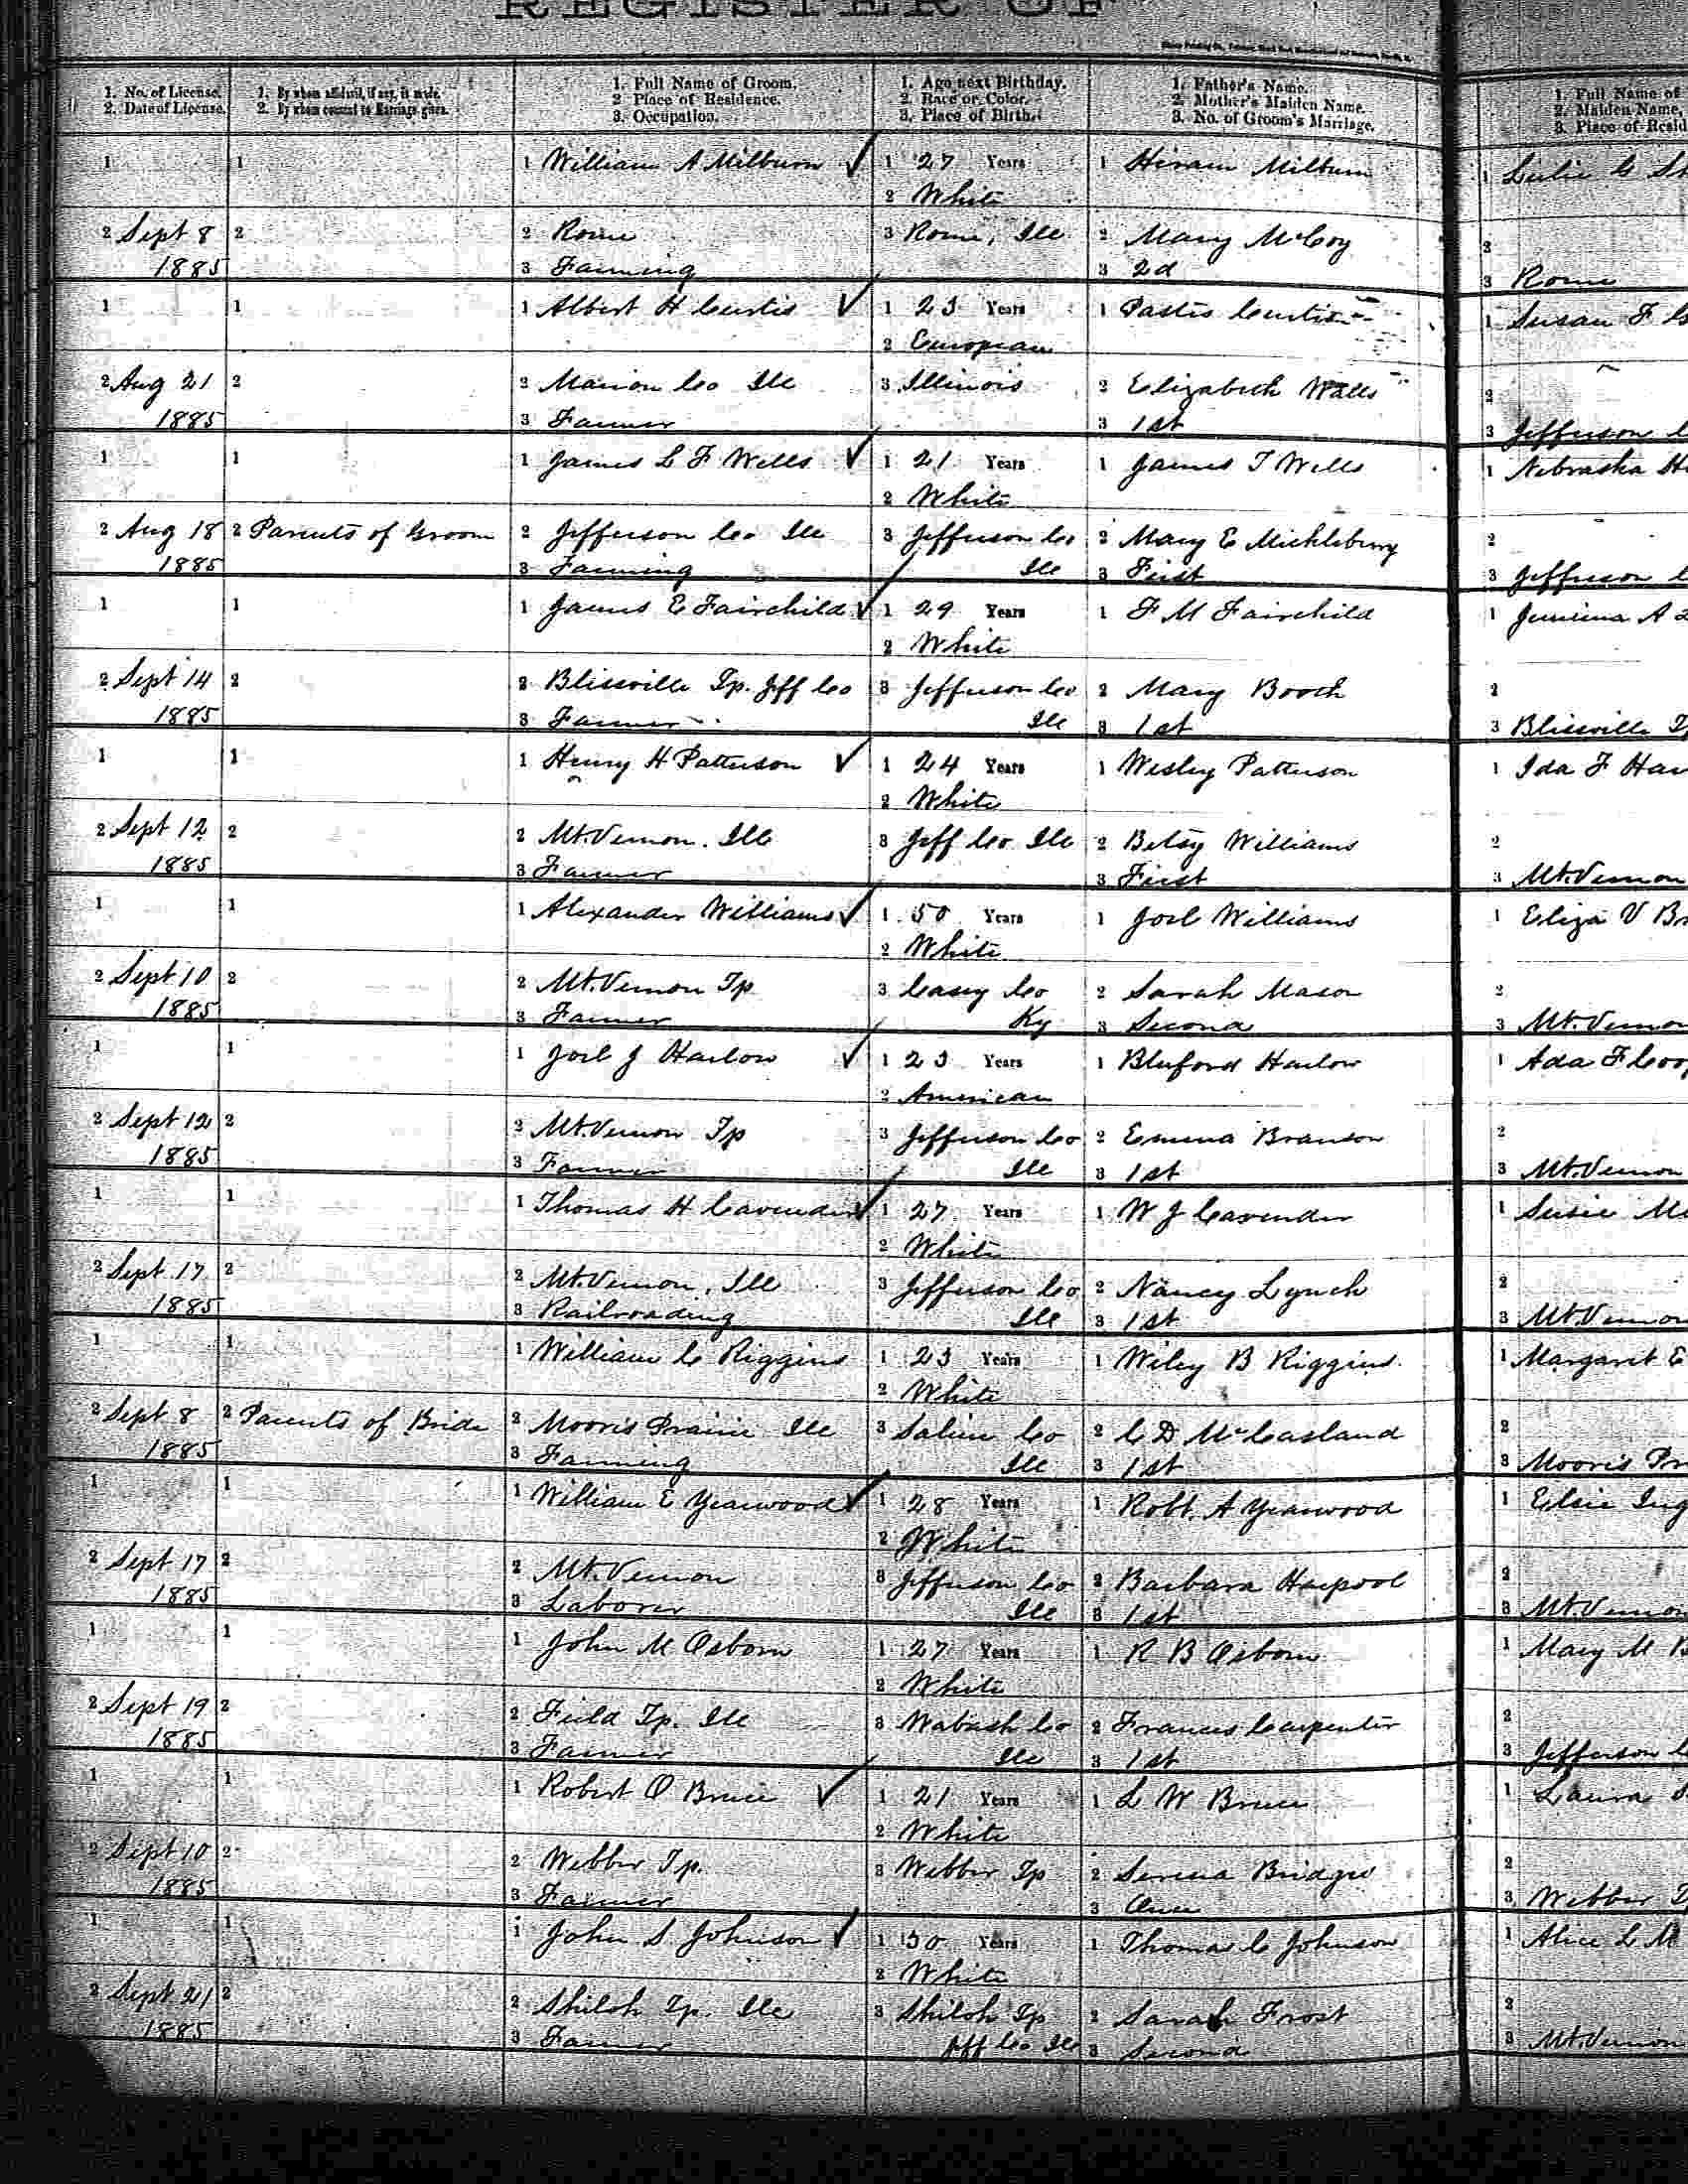 REGISTER OF
1. No. of License.
2. Date of License.
1. By whom affidavit, if any, is made.
2. By whom consent to Marriage given.
1. Full Name of Groom.
2 Place of Residence.
3. Occupation.
1. Age next Birthday.
2. Race or Color.
3. Place of Birth.
1. Father's Name.
2. Mother's Maiden Name.
3. No. of Groom's Marriage.
1. Full Name of
2. Maiden Name,
3. Place of Resid
1 1 1 William A Milburn ✓ 1 27 Years 1 Hiram Milburn 1
2 White
2 Sept 8 2 2 Rome 3 Rome, Ill 2 Mary McCoy 2
1885 3 Farming 3 2d 3 Rome
1 1 1 Albert H Curtis ✓ 1 23 Years 1 Curtis 1 Susan F
2 European
2 Aug 21 2 2 Marion Co Ill 3 Illinois 2 Elizabeth Watts 2
1885 3 Farmer 3 1st 3 Jefferson
1 1 1 James L F Wells ✓ 1 21 Years 1 James T Wells 1 Nebraska
2 White
2 Aug 18 2 Parents of Groom 2 Jefferson Co Ill 3 Jefferson Co 2 Mary E Mickleburry 2
1885 3 Farming Ill 3 First 3 Jefferson
1 1 1 James E Fairchild ✓ 1 29 Years 1 F M Fairchild 1 Jemima A
2 White
2 Sept 14 2 2 Blissville Tp. Jeff Co 3 Jefferson Co 2 Mary Booth 2
1885 3 Farmer Ill 3 1st 3 Blissville T
1 1 1 Henry H Patterson ✓ 1 24 Years 1 Wesley Patterson 1 Ida F
2 White
2 Sept 12 2 2 Mt. Vernon. Ill 3 Jeff Co Ill 2 Betsy Williams 2
1885 3 Farmer 3 First 3 Mt. Vernon
1 1 1 Alexander Williams ✓ 1 50 Years 1 Joel Williams 1 Eliza V Br
2 White
2 Sept 10 2 2 Mt. Vernon Tp 3 Casey Co 2 Sarah Mason 2
1885 3 Farmer Ky 3 Second 3 Mt. Vernon
1 1 1 Joel J Harlow ✓ 1 23 Years 1 Bluford Harlow 1 Ada F Coop
2 American
2 Sept 12 2 2 Mt. Vernon Tp 3 Jefferson Co 2 Emma Branson 2
1885 3 Farmer Ill 3 1st 3 Mt. Vernon
1 1 1 Thomas H Cavender ✓ 1 27 Years 1 W J Cavender 1 Susie M
2 White
2 Sept 17 2 2 Mt. Vernon, Ill 3 Jefferson Co 2 Nancy Lynch 2
1885 3 Railroading Ill 3 1st 3 Mt. Vernon
1 1 1 William C Riggins 1 23 Years 1 Wiley B Riggins 1 Margaret E
2 White
2 Sept 8 2 Parents of Bride 2 Moores Prairie Ill 3 Saline Co 2 C D McCasland 2
1885 3 Farming Ill 3 1st 3 Moores Pr
1 1 1 William E Yearwood ✓ 1 28 Years 1 Robt. A Yearwood 1 Elsie
2 White
2 Sept 17 2 2 Mt. Vernon 3 Jefferson Co 2 Barbara Harpool 2
1885 3 Laborer Ill 3 1st 3 Mt. Vernon
1 1 1 John M Osborn 1 27 Years 1 R B Osborn 1 Mary M B
2 White
2 Sept 19 2 2 Field Tp. Ill 3 Wabash Co 2 Frances Carpenter 2
1885 3 Farmer Ill 3 1st 3 Jefferson C
1 1 1 Robert O Bruce ✓ 1 21 Years 1 L W Bruce 1 Laura
2 White
2 Sept 10 2 2 Webber Tp. 3 Webber Tp 2 Serena Bridges 2
1885 3 Farmer 3 3 Webber T
1 1 1 John S Johnson ✓ 1 30 Years 1 Thomas C Johnson 1 Alice L M
2 White
2 Sept 21 2 2 Shiloh Tp. Ill 3 Shiloh Tp 2 Sarah Frost 2
1885 3 Farmer Jeff Co Ill 3 Second 3 Mt. Vernon